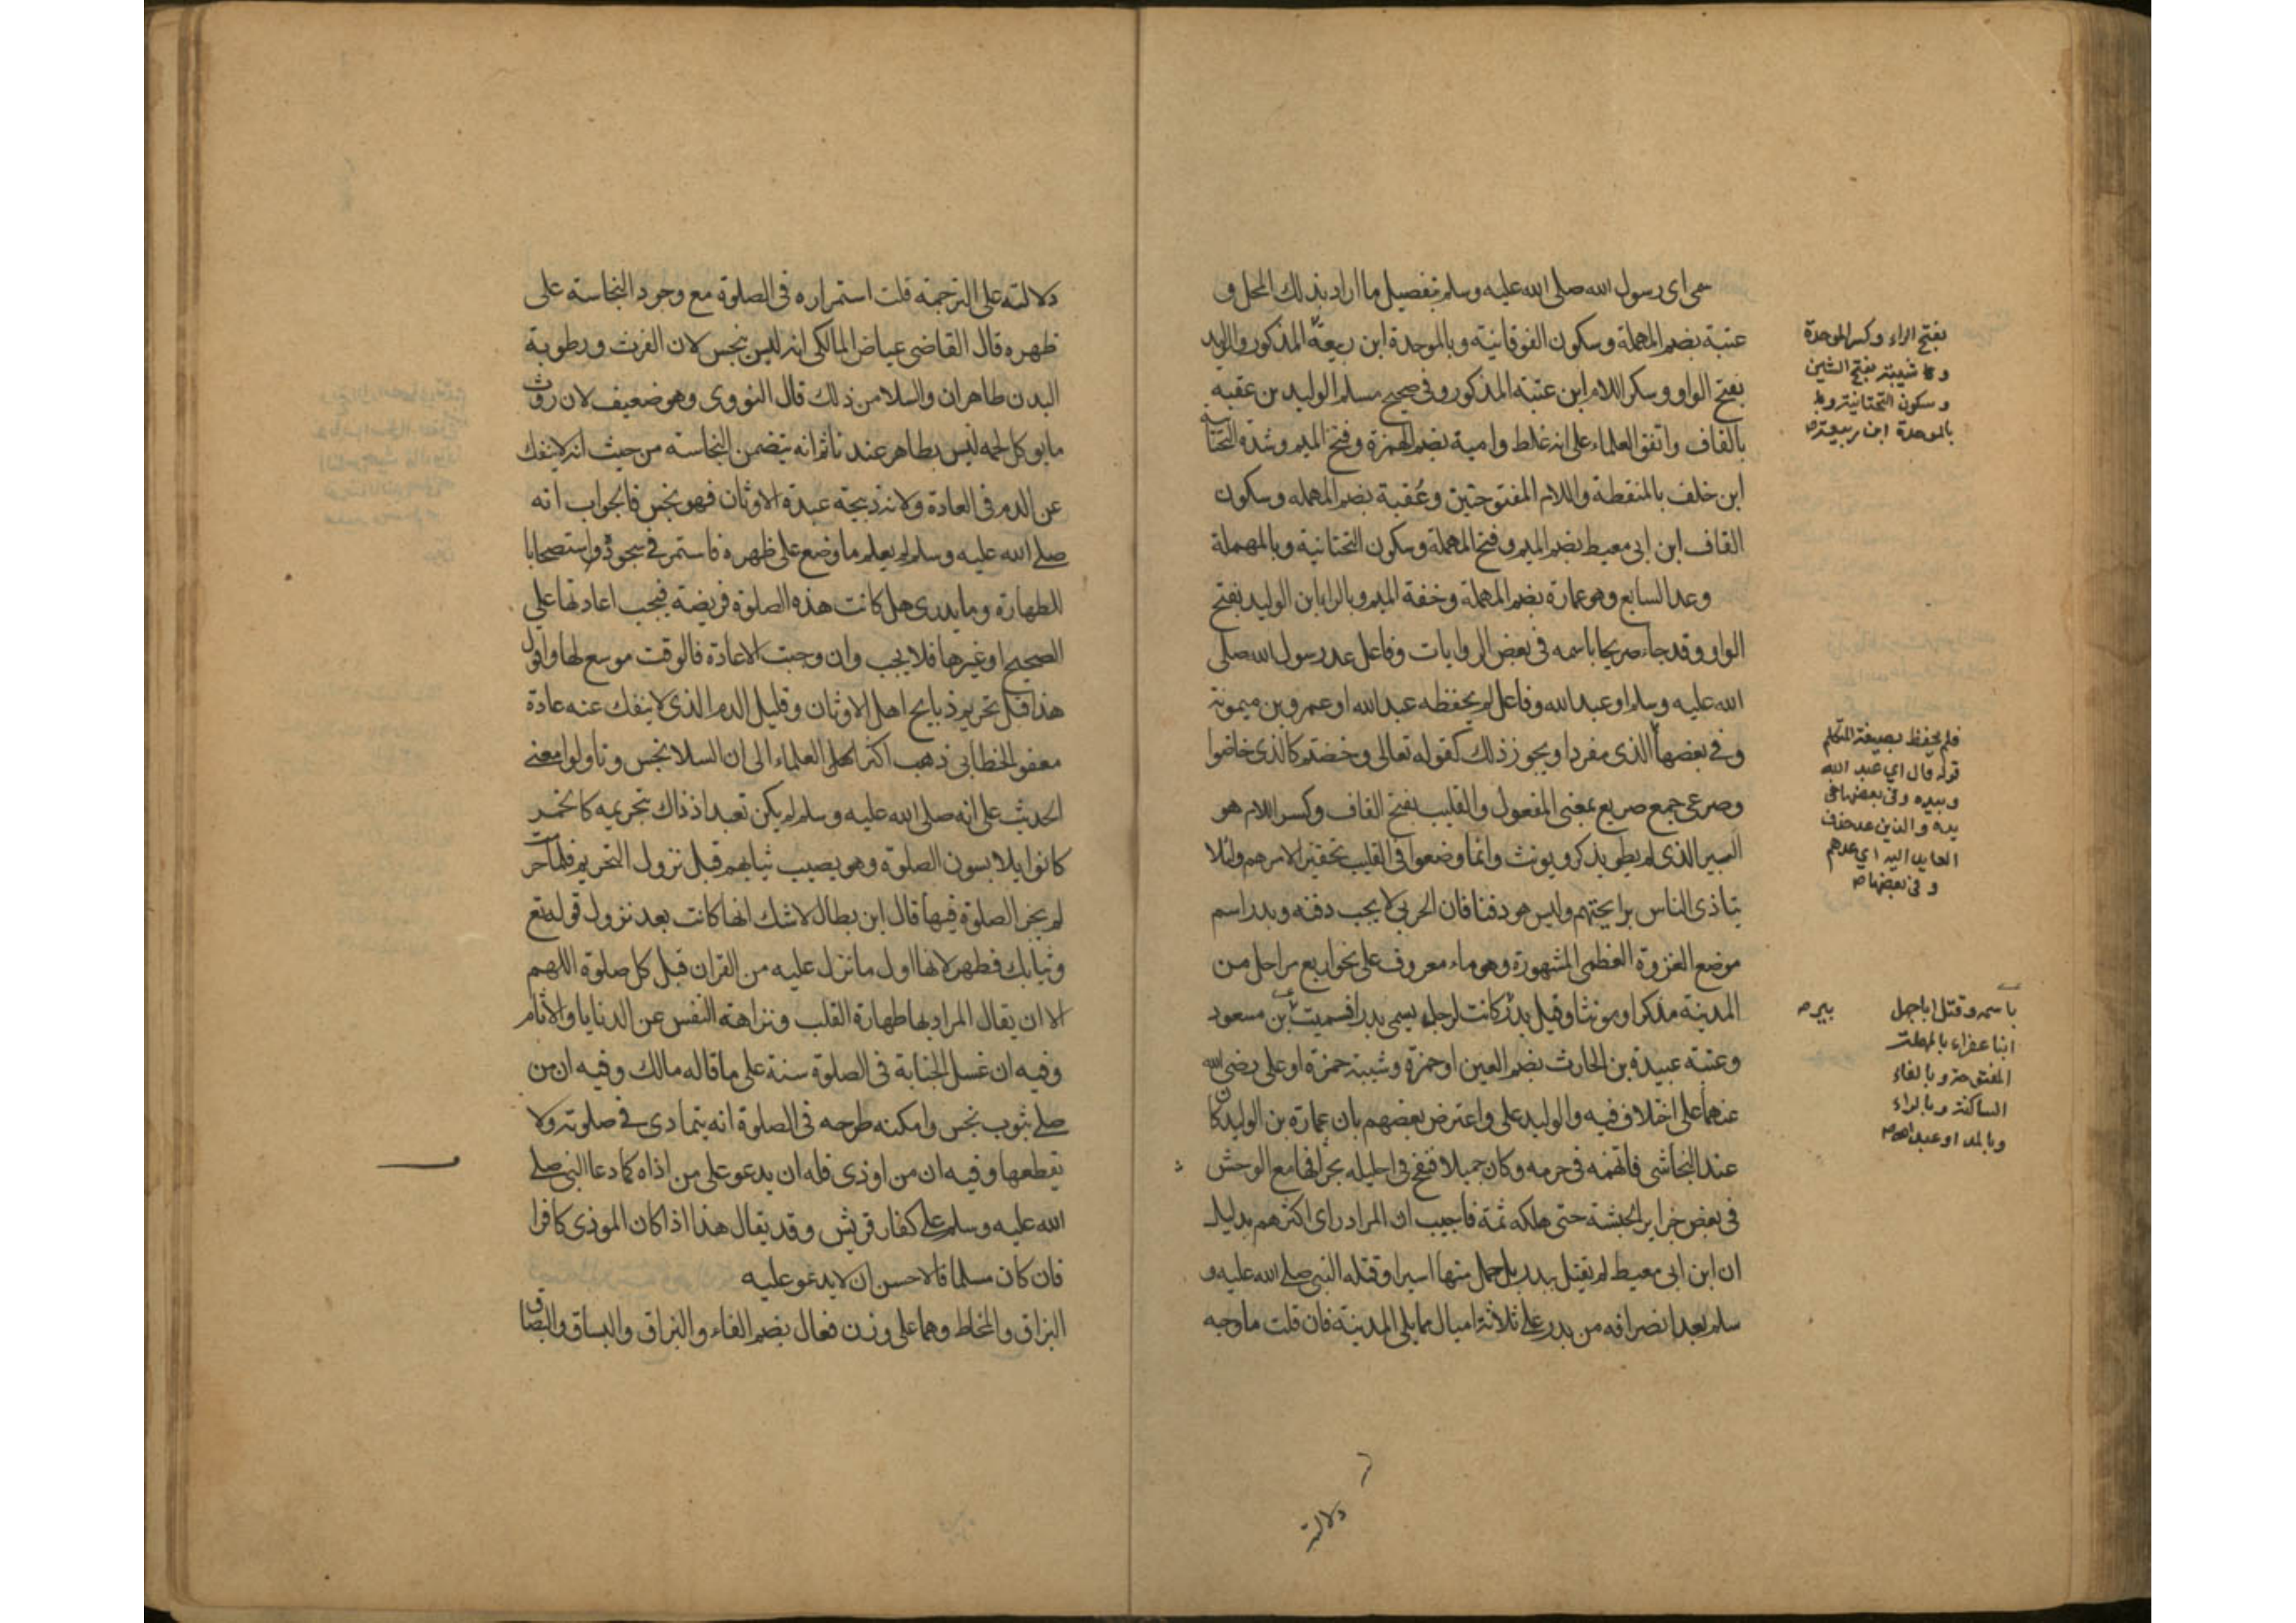 سمى اى رسول الله صلى الله عليه وسلم تفصيل ما اراد بذلك المجمل و
عتبة بضم المهملة وسكون الفوقانية وبالموحدة ابن ربيعة المذكور والوليد
بفتح الواو وسكر اللام ابن عتبة المذكور وفى صحيح مسلم الوليد بن عقبه
بالقاف واتفق العلماء على انه غلط وامية بضم الهمزة وفتح الميم وشدة التحتانية
ابن خلف بالمنقطة واللام المفتوحتين وعُقبة بضم المهمله وسكون
القاف ابن ابى معيط بضم الميم وفتح المهملة وسكون التحتانية وبالمهملة
وعد السابع وهو عمارة بضم المهملة وخفة الميم وبالراء ابن الوليد بفتح
الواو وقد جاء صريحا باسمه فى بعض الروايات وفاعل عد رسول الله صلى
الله عليه وسلم او عبد الله وفاعل لم يحفظه عبد الله او عمرو بن ميمونة
وفى بعضها الذى مفردا ويجوز ذلك كقوله تعالى وخضتم كالذى خاضوا
وصرعى جمع صريع بمعنى المفعول والقليب بفتح القاف وكسر اللام هو
البير الذى لم يطو يذكر ويونث وانما وضعوا فى القليب تحقيرا لامرهم ولئلا
يتاذى الناس برايحتهم وليس هو دفنا فان الحربى لا يجب دفنه وبدر اسم
موضع الغزوة العظمى المشهورة وهو ماء معروف على نحو اربع مراحل من
المدينة مذكرا ومونثا وقيل بدر كانت لرجل يسمى بدرا فسميت بن مسعود
وعتبة عبيدة بن الحارث بضم العين او حمزة وشيبة حمزة او على رضى الله
عنهما على اختلاف فيه والوليد على واعترض بعضهم بان عمارة بن الوليد كان
عند النجاشى فاتهمه فى حرمه وكان جميلا فنفخ فى احليله سحرا فهام مع الوحش
فى بعض جزاير الحبشة حتى هلكه ثمة فاجيب ان المراد راى اكثرهم بدليل
ان ابن ابى معيط لم يقتل ببدر بل حمل منها اسيرا وقتله النبى صلى الله عليه و
سلم بعد انصرافه من بدر على ثلاثة اميال مما يلى المدينة فان قلت ما وجه
بفتح الراء وكسر الموحدة
وكا شيبة بفتح الشين
وسكون التحتانية وبا
بالموحدة ابن ربيعة صح
فلم نحفظ بصيغة المتكلم
قوله قال اي عبد الله
وبيده وفى بعضها فى
يده والذين عد حذف
العايد اليه اي عدهم
وفى بعضها صح
باسمه وقتل اباجهل
ابنا عفراء بالمهملة
المفتوحة وبالفاء
الساكنة وبالراء
وبالمد او عبد الله صح
بير ص
دلالته
دلالته على الترجمة قلت استمراره فى الصلوة مع وجود النجاسة على
ظهره قال القاضى عياض المالكى انه ليس بنجس لان الفرث ورطوبة
البدن طاهران والسلا من ذلك قال النووى وهو ضعيف لان روث
ما يوكل لحمه ليس بطاهر عندنا ثم انه يتضمن النجاسة من حيث انه لا ينفك
عن الدم فى العادة ولانه ذبيحة عبدة الاوثان فهو نجس فالجواب انه
صلى الله عليه وسلم لم يعلم ما وضع على ظهره فاستمر فى سجوده استصحابا
للطهارة وما يدرى هل كانت هذه الصلوة فريضة فيجب اعادتها على
الصحيح او غيرها فلا يجب وان وجبت الاعادة فالوقت موسع لها واقول
هذا قبل تحريم ذبايح اهل الاوثان وقليل الدم الذى لا ينفك عنه عادة
معفو الخطابى ذهب اكثر العلماء الى ان السلا نجس وتاولوا معنى
الحديث على انه صلى الله عليه وسلم لم يكن تعبد اذ ذاك بتحريمه كالخمر
كانوا يلابسون الصلوة وهو يصيب ثيابهم قبل نزول التحريم فلما حرمت
لم يجز الصلوة فيها قال ابن بطال لاشك انها كانت بعد نزول قوله تع
وثيابك فطهر لانها اول ما نزل عليه من القران قبل كل صلوة اللهم
الا ان يقال المراد بها طهارة القلب ونزاهة النفس عن الدنايا والاثام
وفيه ان غسل الجنابة فى الصلوة سنة على ما قاله مالك وفيه ان من
صلى بثوب نجس وامكنه طرحه فى الصلوة انه يتمادى فى صلوته ولا
يقطعها وفيه ان من اوذى فله ان يدعو على من اذاه كما دعا النبى صلى
الله عليه وسلم على كفار قريش وقد يقال هذا اذا كان الموذى كافرا
فان كان مسلما فالاحسن ان لا يدعو عليه
البزاق والمخاط وهما على وزن فعال بضم الفاء والبزاق والبساق والبصاق